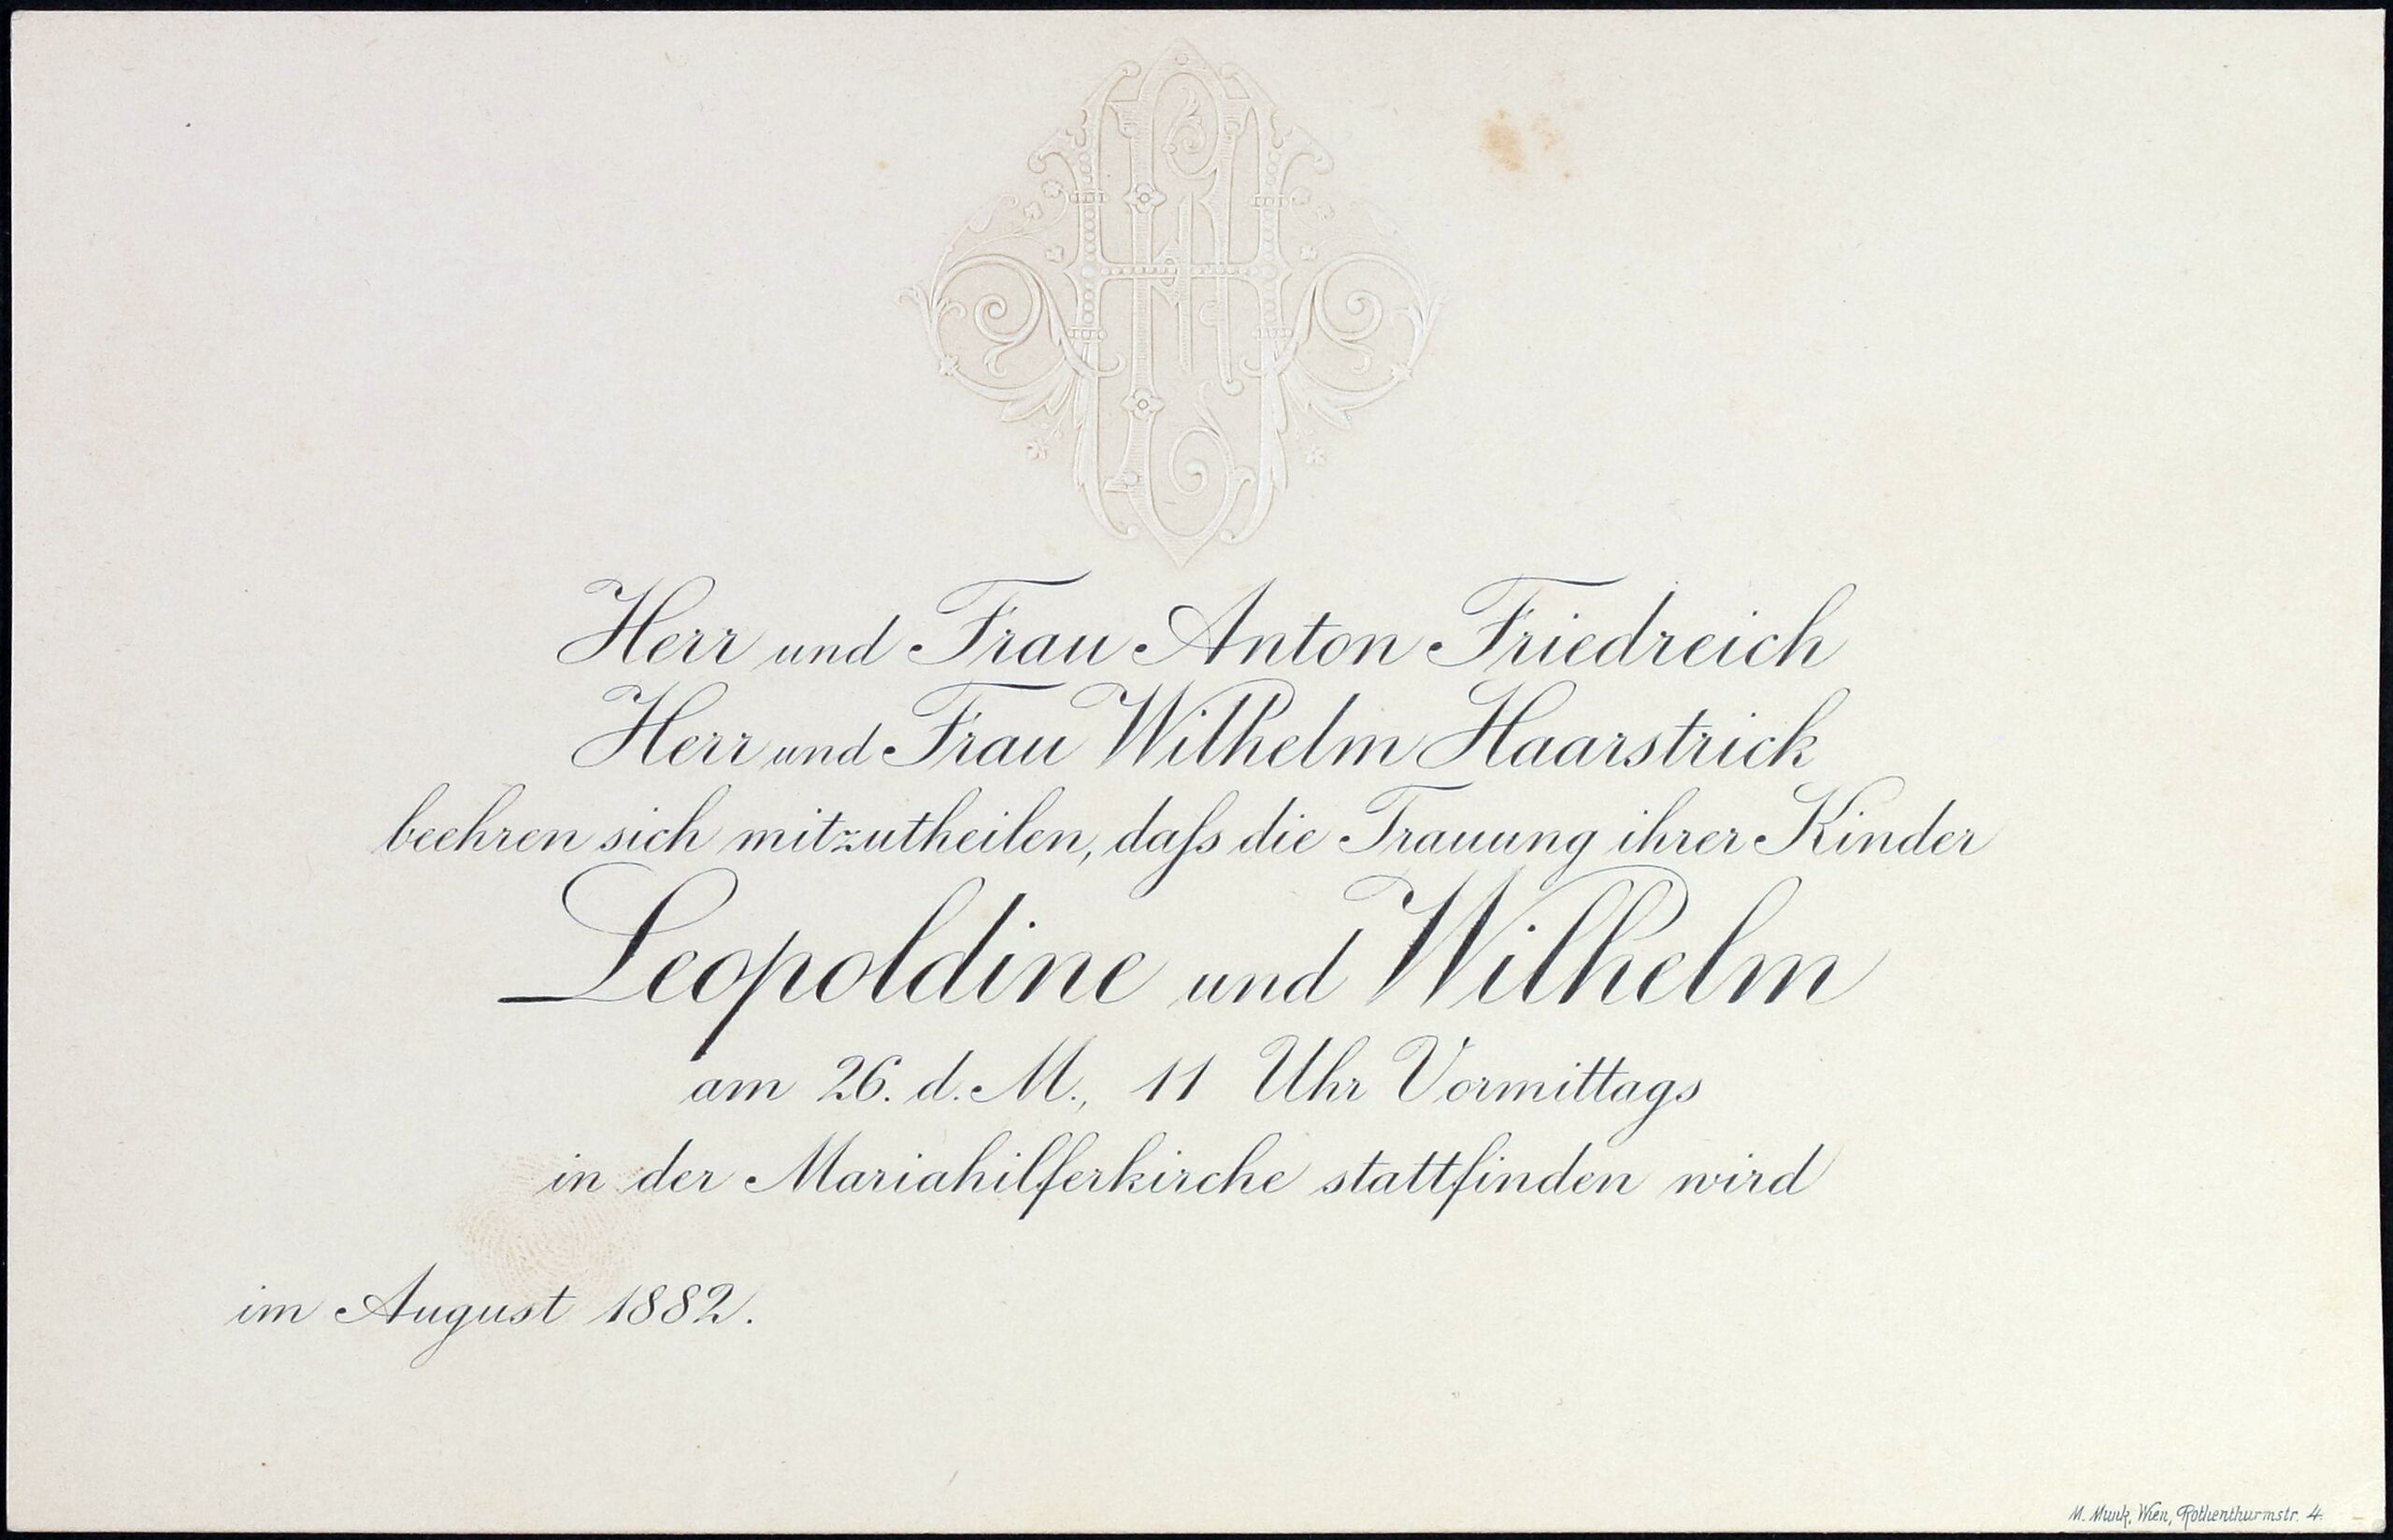 Herr und Frau Anton Friedreich
Herr und Frau Wilhelm Haarstrick
beehren sich mitzutheilen, daſs die Trauung ihrer Kinder
Leopoldine und Wilhelm
am 26. d. M., 11 Uhr Vormittags
in der Mariahilferkirche stattfinden wird
im August 1882.
M. Munk, Wien, Rothenthurmstr. 4.